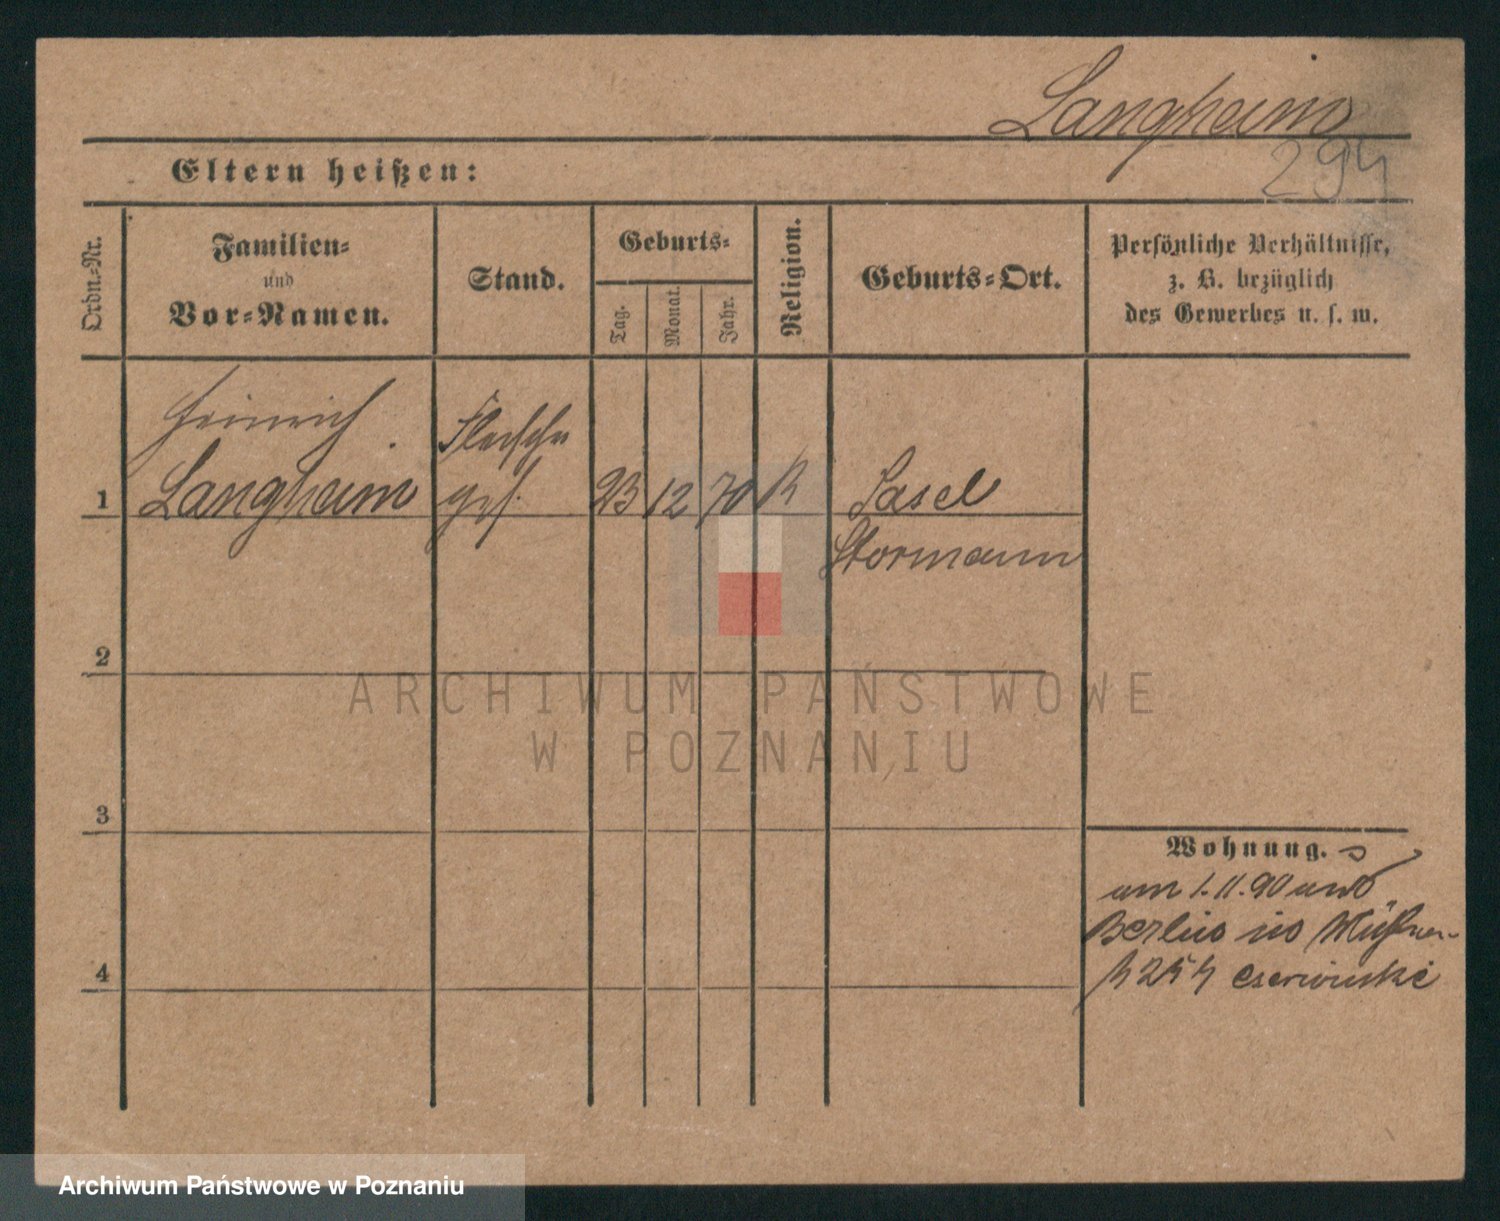 Langheim
294
Eltern heißen:
Ordn.-Nr.
Familien-
und
Vor-Namen.
Stand.
Geburts-
Tag.
Monat.
Jahr.
Religion.
Geburts-Ort.
Persönliche Verhältnisse,
z. B. bezüglich
des Gewerbes u. s. w.
Heinrich
Fleischer
1 Langheim ges. 23 12 70 Sasel
Stormarn
2
ARCHIWUM PAŃSTWOWE
W POZNANIU
3
Wohnung.
am 1.11.90 aus
Berlin in
4
Archiwum Państwowe w Poznaniu